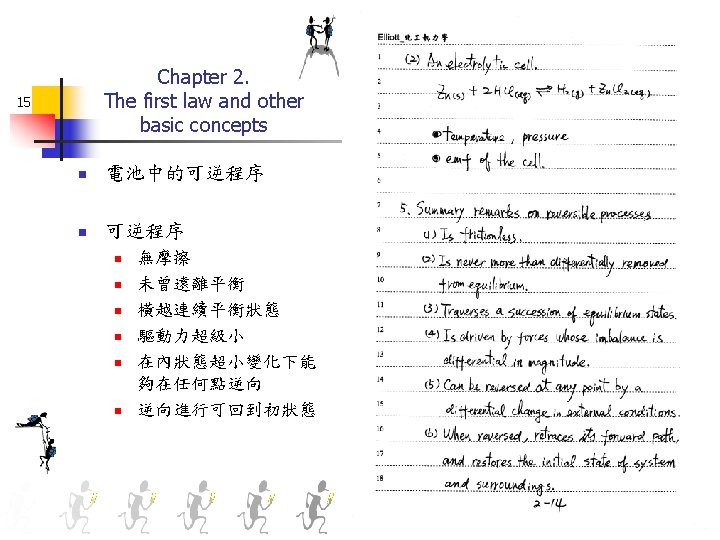 15
Chapter 2.
The first law and other
basic concepts
電池中的可逆程序
可逆程序
無摩擦
未曾遠離平衡
橫越連續平衡狀態
驅動力超級小
在內狀態超小變化下能
夠在任何點逆向
逆向進行可回到初狀態
Elliott_化工熱力學
1 (2) An electrolytic cell.
2 Zn(s) + 2HCl(aq) ⇌ H2(g) + ZnCl2(aq)
3
4 temperature, pressure
5 emf of the cell.
6
7 5. Summary remarks on reversible processes
8 (1) Is frictionless.
9 (2) Is never more than differentially removed
10 from equilibrium.
11 (3) Traverses a succession of equilibrium states.
12 (4) Is driven by forces whose imbalance is
13 differential in magnitude.
14 (5) Can be reversed at any point by a
15 differential change in external conditions.
16 (6) When reversed, retraces its forward path,
17 and restores the initial state of system
18 and surroundings.
2-14